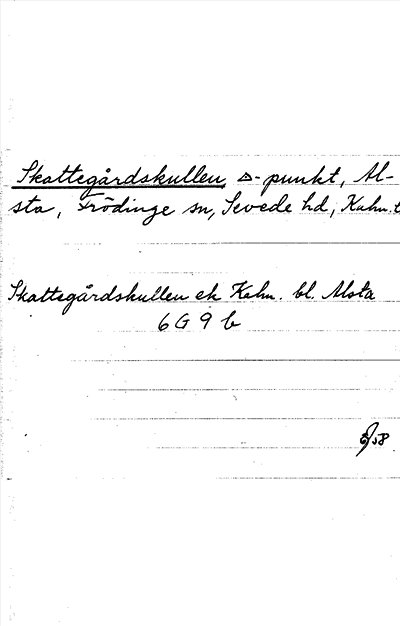 Skattegårdskullen, △-punkt, Al-
sta, Frödinge sn, Sevede hd, Kalm.
Skattegårdskullen ek Kalm. bl. Alsta
6 G 9 b